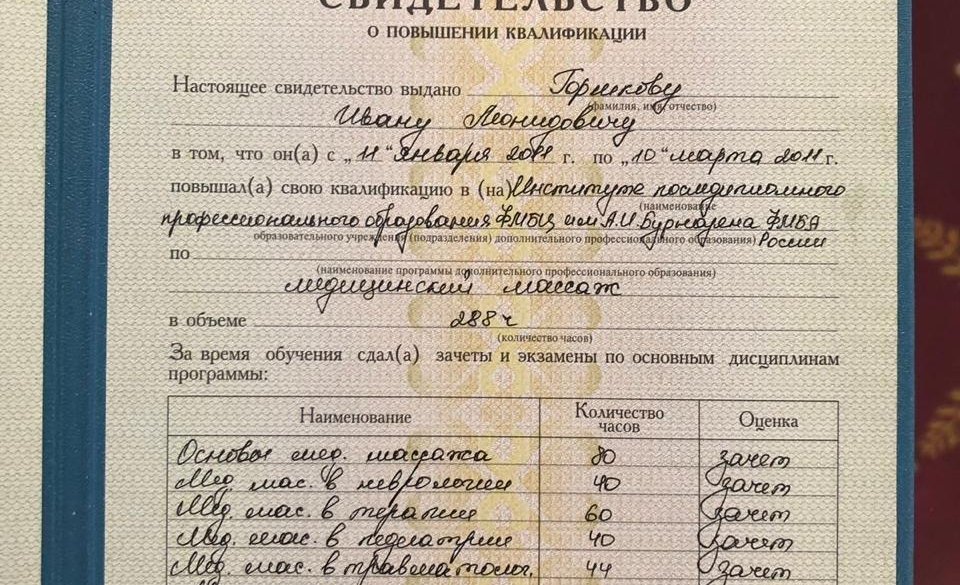 СВИДЕТЕЛЬСТВО
О ПОВЫШЕНИИ КВАЛИФИКАЦИИ
Настоящее свидетельство выдано Горшкову
(фамилия, имя, отчество)
Ивану Леонидовичу
в том, что он(а) с „11“ января 2011 г. по „10“ марта 2011 г.
повышал(а) свою квалификацию в (на) Институте последипломного
(наименование
профессионального образования ФМБЦ им. А.И. Бурназяна ФМБА
образовательного учреждения (подразделения) дополнительного профессионального образования) России
по
(наименование программы дополнительного профессионального образования)
медицинский массаж
в объеме 288 ч
(количество часов)
За время обучения сдал(а) зачеты и экзамены по основным дисциплинам
программы:
Наименование Количество часов Оценка
Основы мед. массажа 80 зачет
Мед. мас. в неврологии 40 зачет
Мед. мас. в терапии 60 зачет
Мед. мас. в педиатрии 40 зачет
Мед. мас. в травматолог. 44 зачет